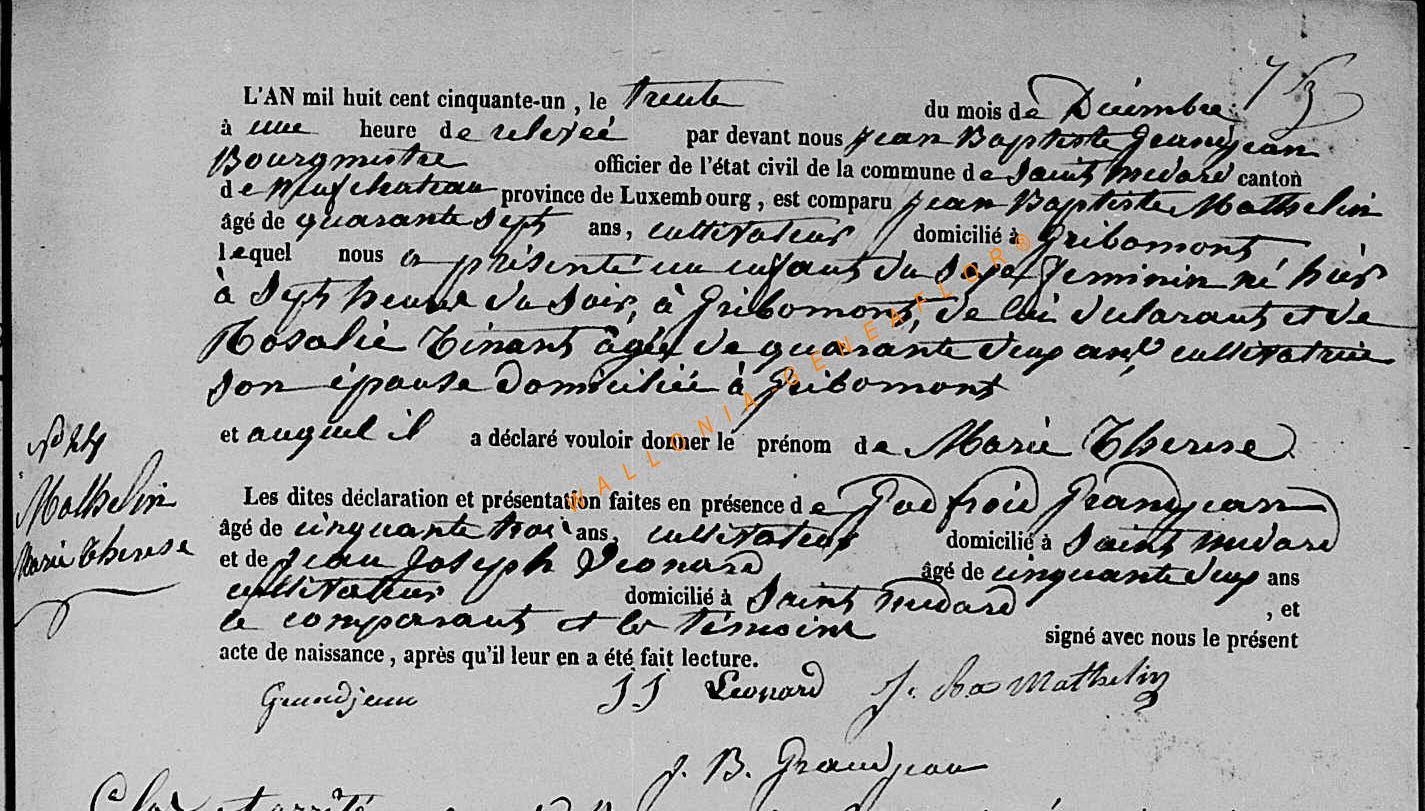 L'AN mil huit cent cinquante-un, le trente du mois de Décembre
à une heure de relevée par devant nous Jean Baptiste Grandjean
Bourgmestre officier de l'état civil de la commune de Saint Médard canton
de Neufchateau province de Luxembourg, est comparu Jean Baptiste Mathelin
âgé de quarante sept ans, cultivateur domicilié à Gribomont
lequel nous a présenté un enfant du sexe feminin né hier
à Sept heure du Soir, à Gribomont, de lui declarant et de
Rosalie Tinant âgée de quarante deux ans, cultivatrice
son épouse domiciliée à Gribomont
et auquel il a déclaré vouloir donner le prénom de Marie Therese
Nº 24
Mathelin
Marie Therese
Les dites déclaration et présentation faites en présence de Godfroid Grandjean
âgé de cinquante trois ans, cultivateur domicilié à Saint Médard
et de Jean Joseph Leonard âgé de cinquante deux ans
cultivateur domicilié à Saint Médard, et
le comparant et les témoins signé avec nous le présent
acte de naissance, après qu'il leur en a été fait lecture.
Grandjean JJ Leonard J. Bte Mathelin
J. B. Grandjean
Clos et arrêté
WALLONIA-GENEAFLOR®